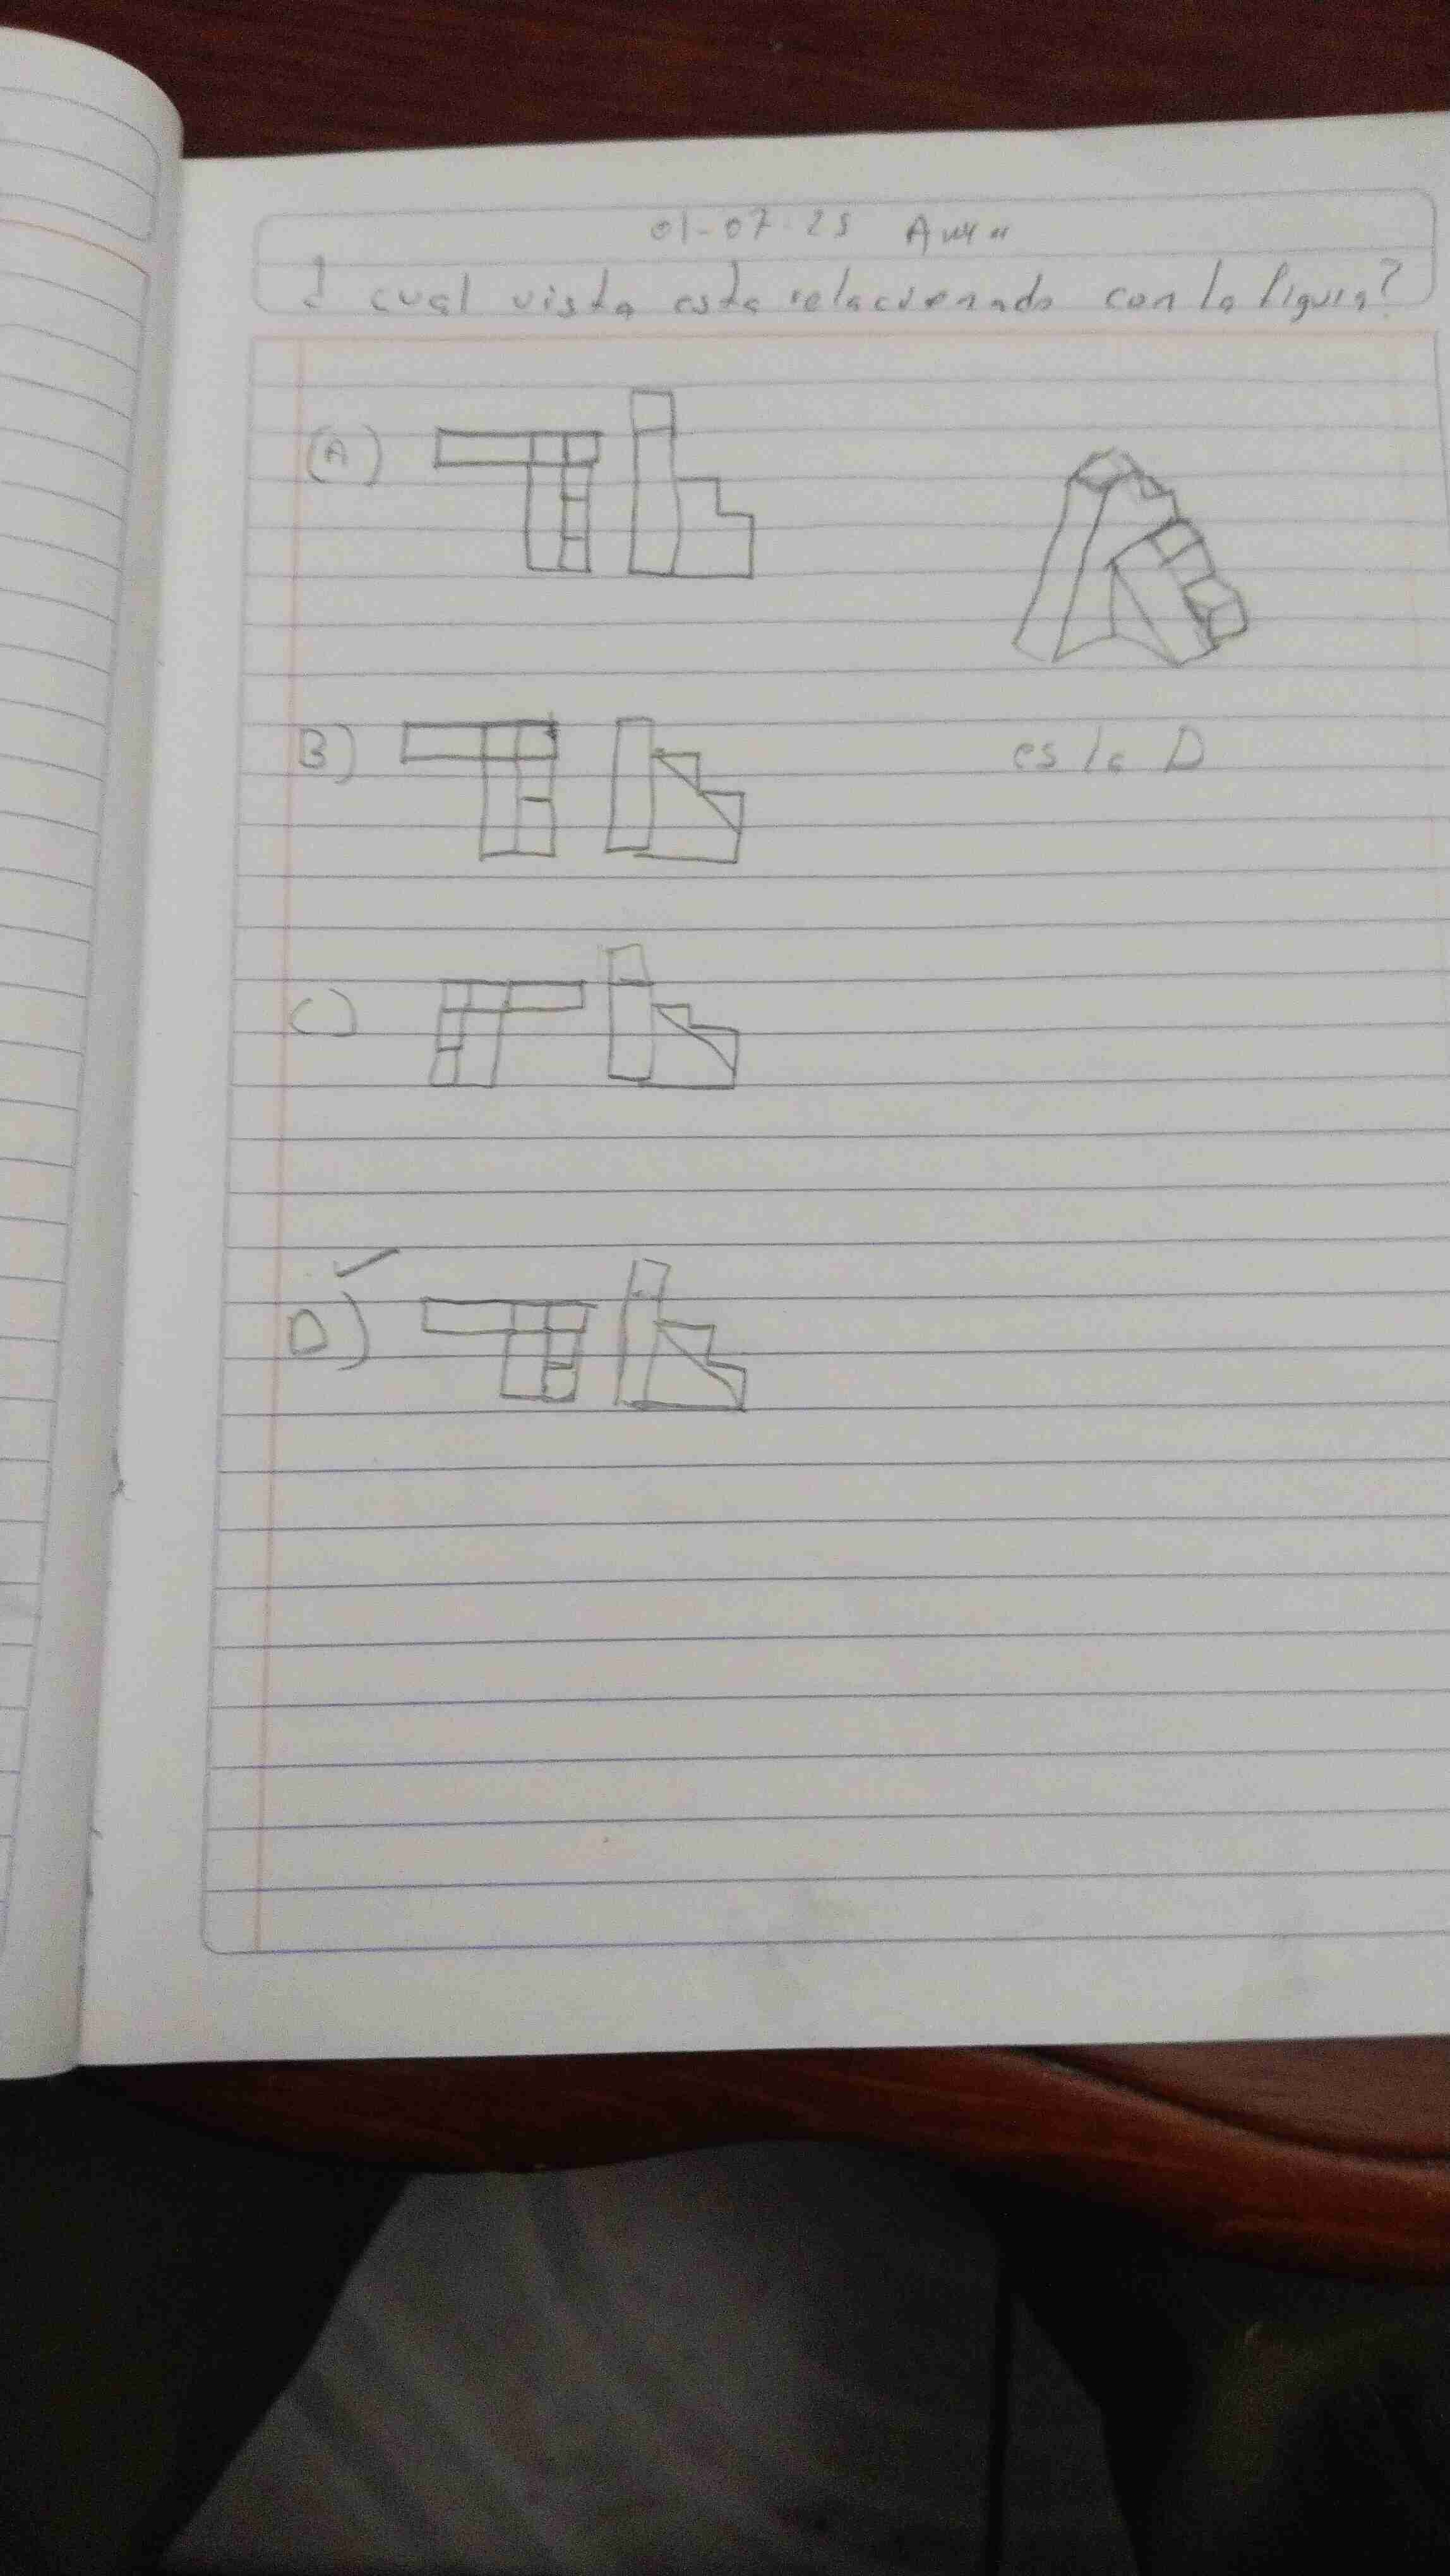 01-07-25
¿ cual vista esta relacionado con la figura?
(A)
B)
es la D
C)
D)